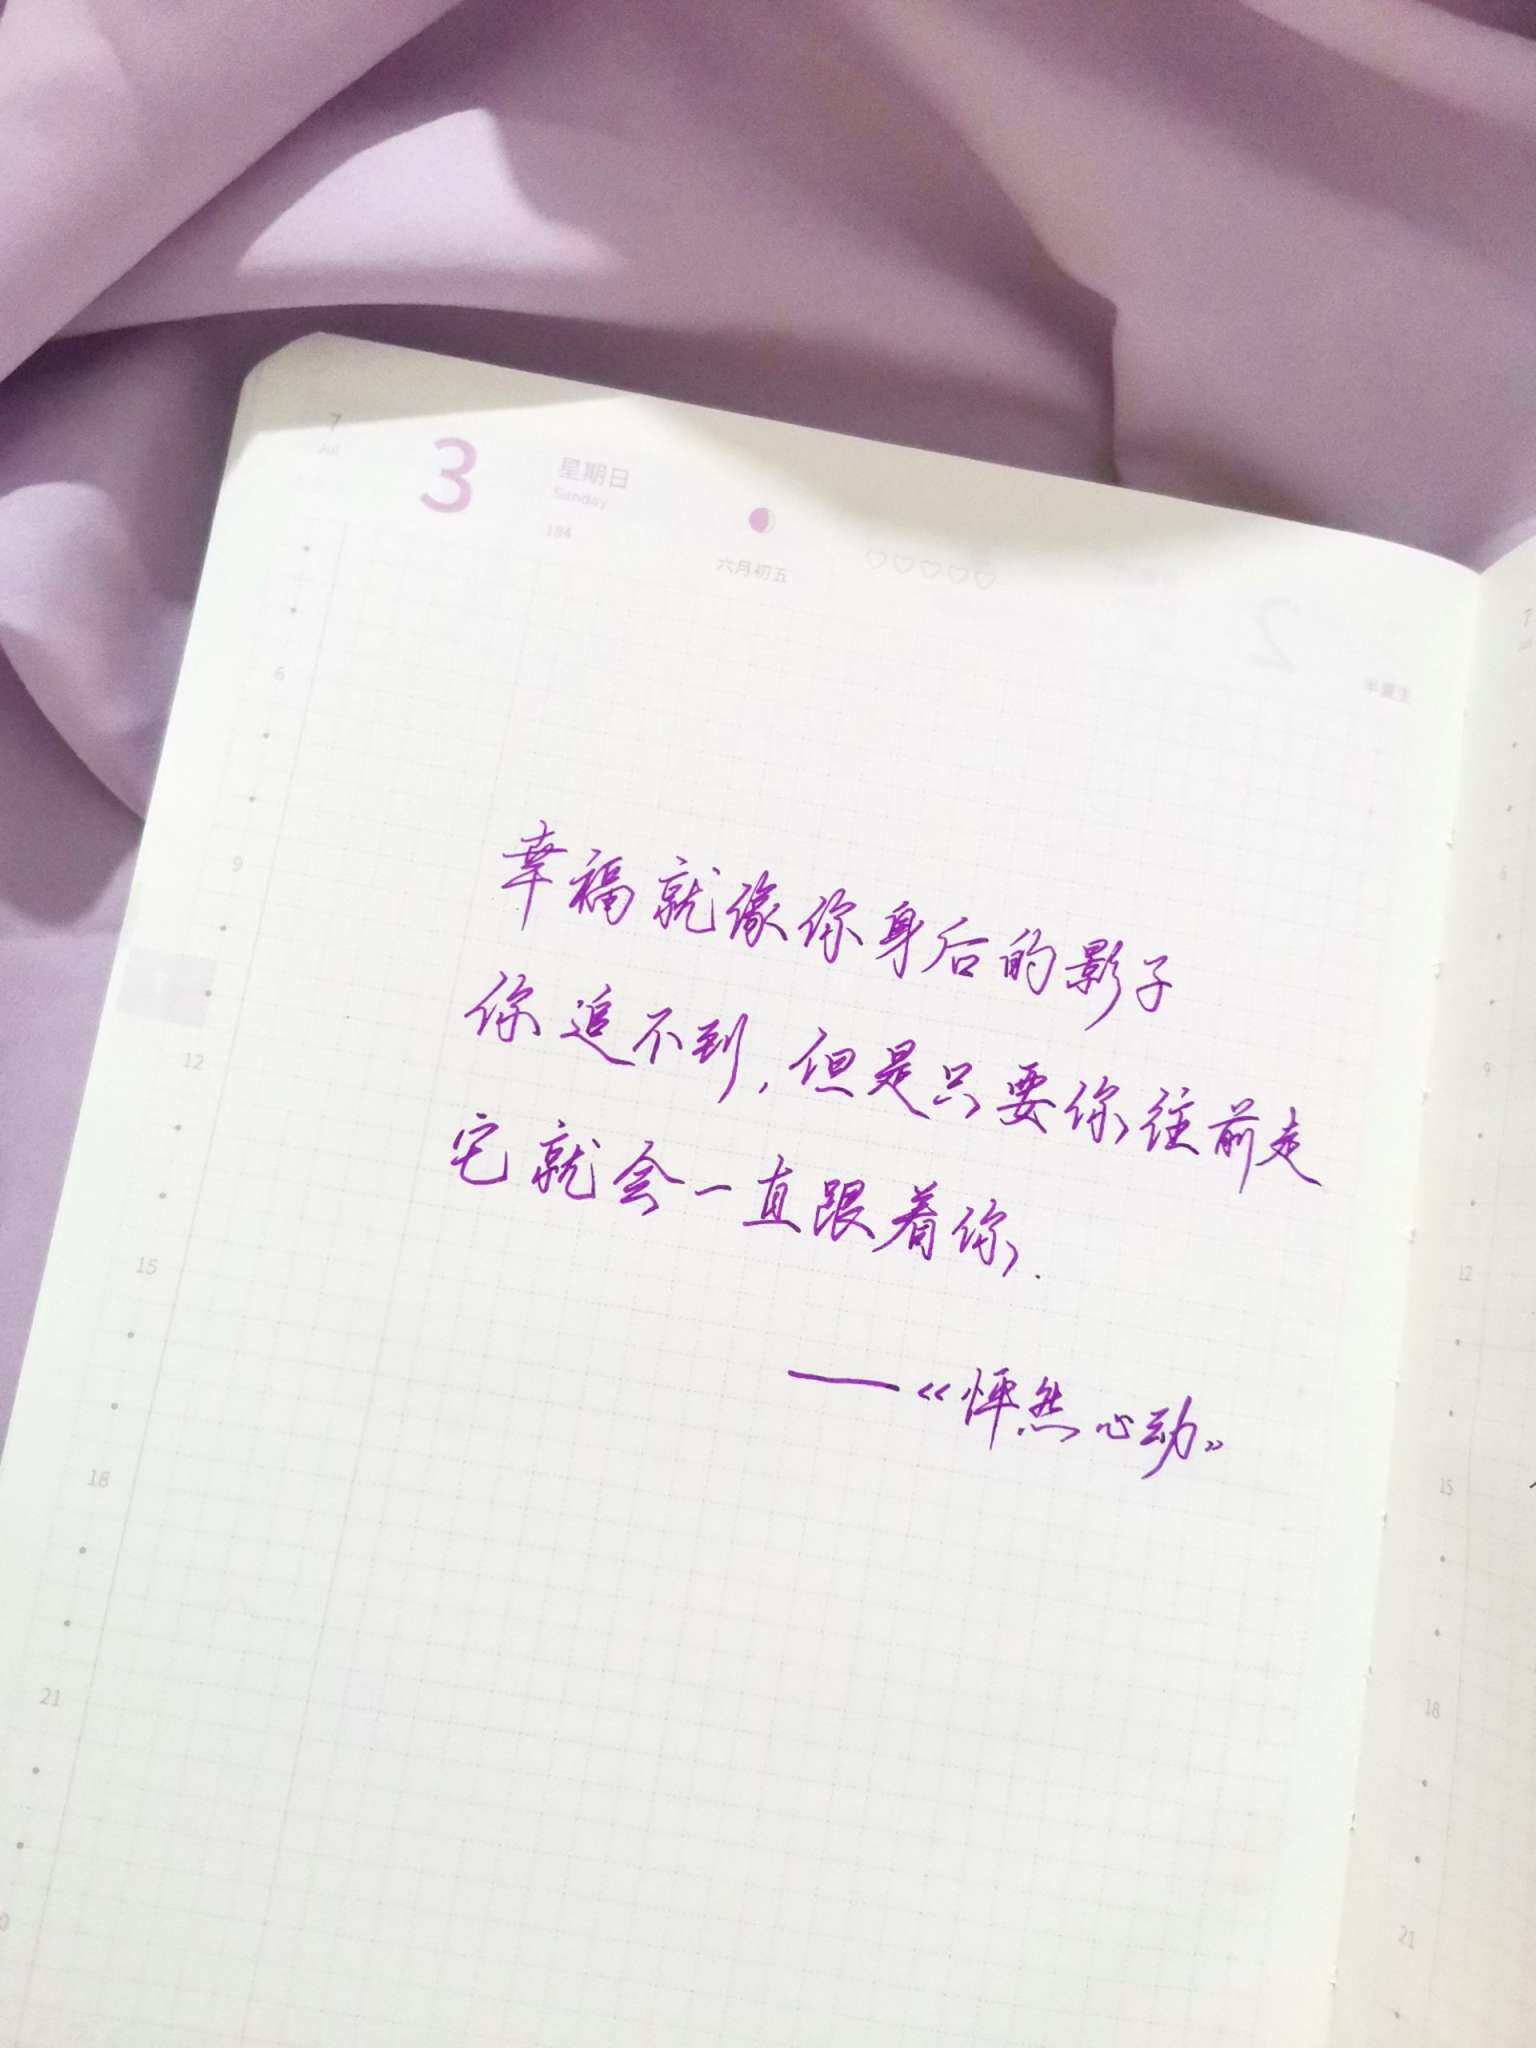 7
Jul
3
星期日
Sunday
184
六月初五
幸福就像你身后的影子
你追不到,但是只要你往前走
它就会一直跟着你.
——《怦然心动》
6
9
12
15
18
21
9
12
15
18
21